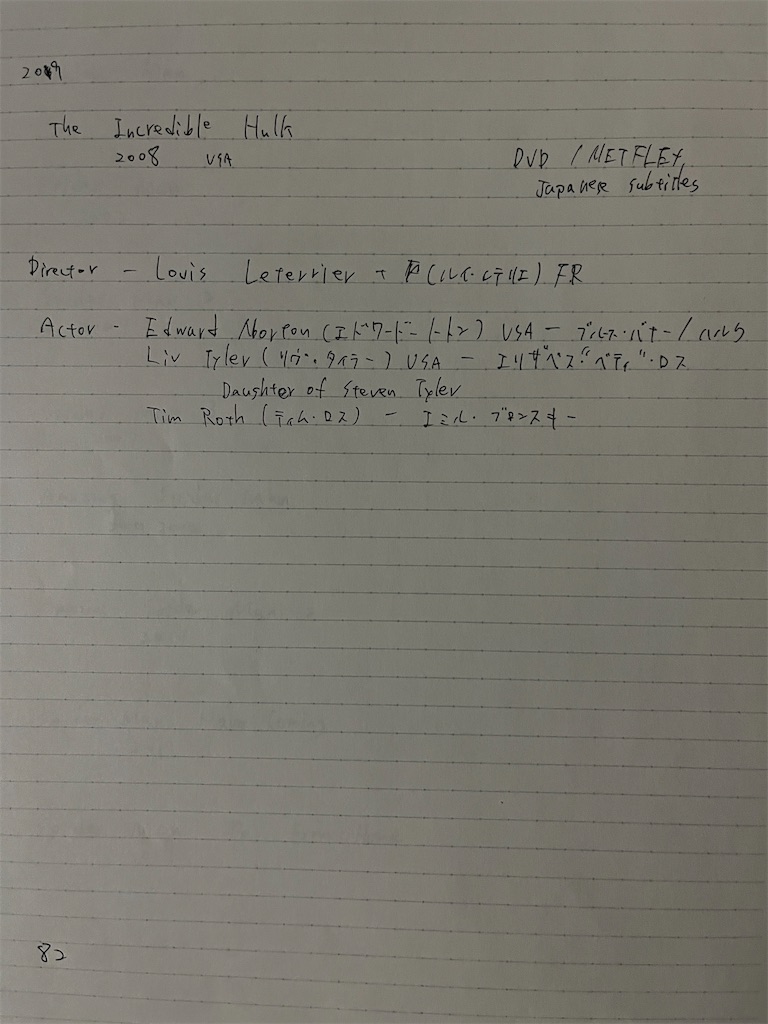 2019
The Incredible Hulk
2008 USA
DVD / NETFLEX,
Japanese subtitles
Director - Louis Leterrier (ルイ・レテリエ) FR
Actor - Edward Norton (エドワード・ノートン) USA - ブルース・バナー / ハルク
Liv Tyler (リヴ・タイラー) USA - エリザベス“ベティ”・ロス
Daughter of Steven Tyler
Tim Roth (ティム・ロス) - エミル・ブロンスキー
82